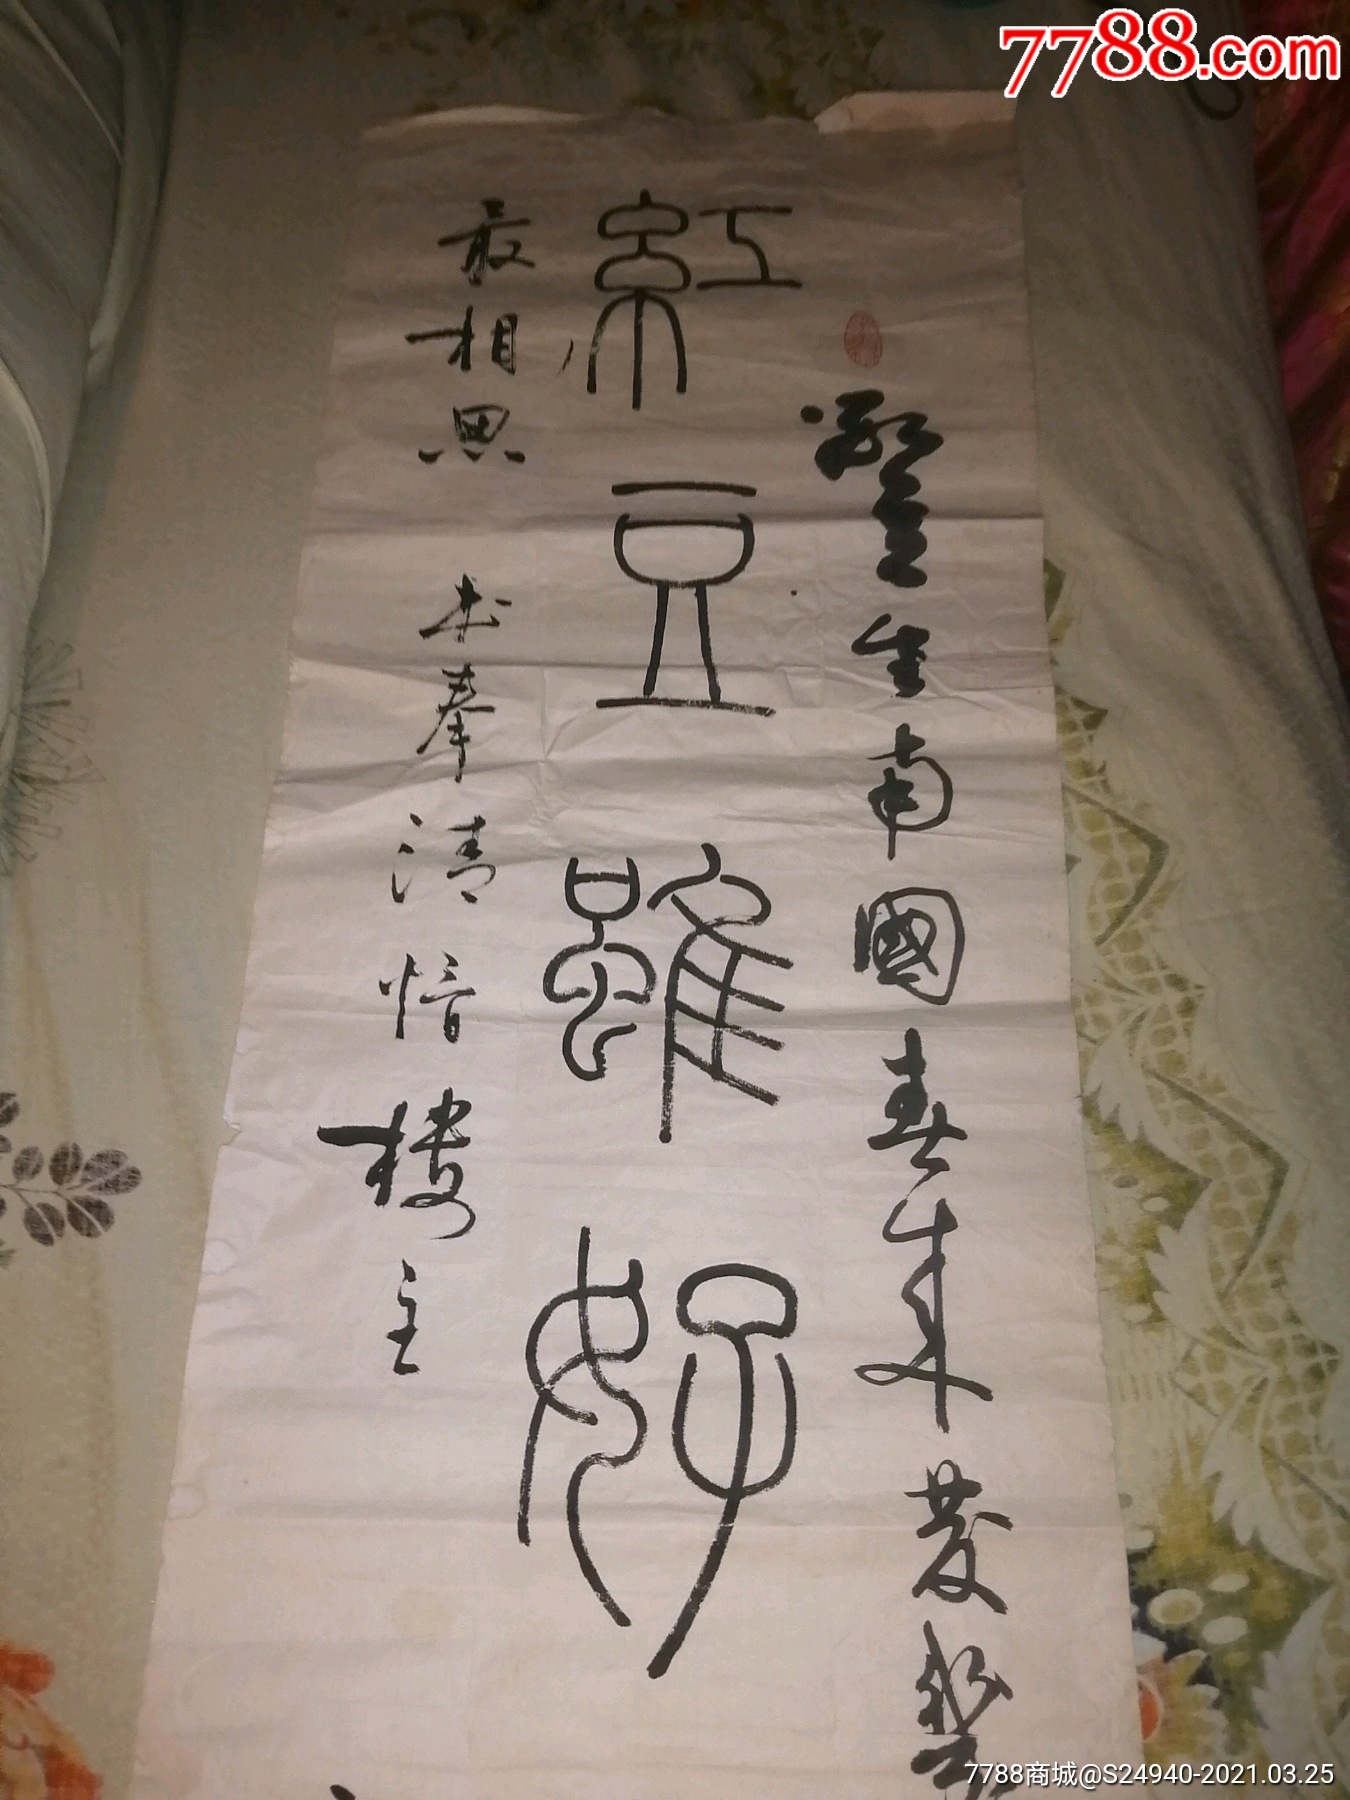 7788.com
紅豆生南國春來發
紅豆雖好
最相思 書奉清愔樓主
7788商城@S24940-2021.03.25